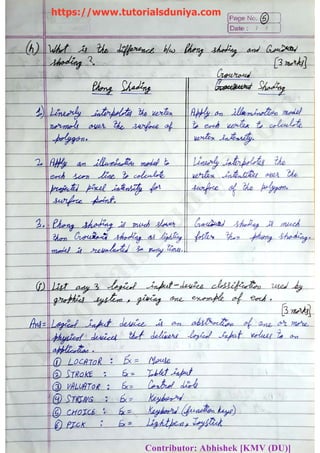 https://www.tutorialsduniya.com
Page No. 6
Date : / /
(h) What is the difference b/w Phong shading and Gouraud
shading ?. [3 marks]
Phong Shading
Gouraud Shading
1) Linearly interpolates the vertex
normals over the surface of
polygon.
Apply an illumination model
to each vertex to calculate
vertex intensity.
2. Apply an illumination model to
each scan line to calculate
projected pixel intensity for
surface point.
Linearly interpolates the
vertex intensities over the
surface of the polygon.
3. Phong shading is much slower
than Gouraud shading as lighting
model is revaluated so many time.
Gouraud shading is much
faster than phong shading.
(i) List any 3 logical input-device classification used by
graphics system, giving one example of each.
[3 marks]
Ans= Logical input device is an abstraction of one or more
physical devices that delivers logical input values to an
application.
① LOCATOR : Ex = Mouse
② STROKE : Ex = Tablet input
③ VALUATOR : Ex = Control dials
④ STRING : Ex = Keyboard
⑤ CHOICE : Ex = Keyboard (function keys)
⑥ PICK : Ex = Lightpen Joystick
Contributor: Abhishek [KMV (DU)]